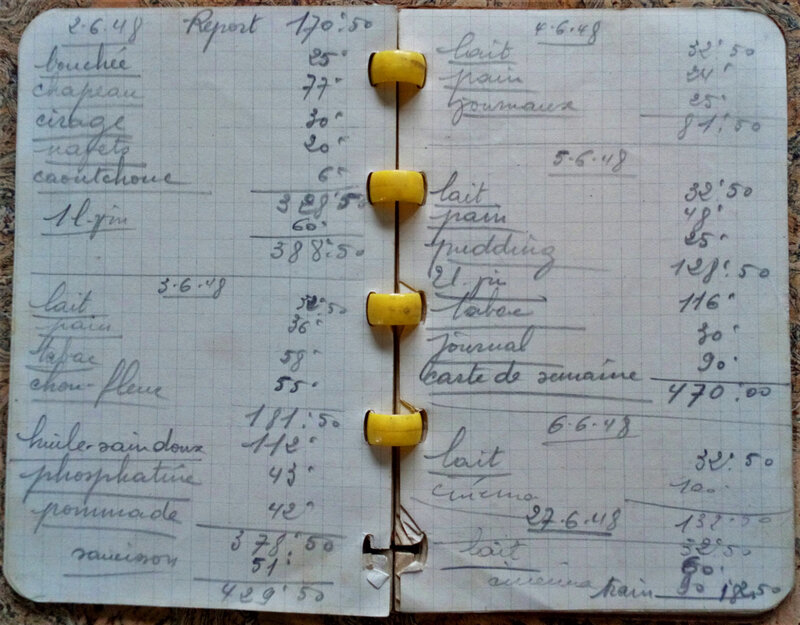 2.6.48 Report 170:50
bouchée 25"
chapeau 77"
cirage 30"
navets 20"
caoutchouc 6"
328:50
1 l. vin 60"
388:50
3.6.48
lait 32:50
pain 36"
tabac 58"
chou-fleur 55"
181:50
huile-saindoux 112"
phosphatine 43"
pommade 42"
378:50
saucisson 51:
429:50
4.6.48
lait 32:50
pain 24"
journaux 25"
81:50
5.6.48
lait 32:50
pain 48"
pudding 25"
2 l. vin 128:50
tabac 116"
journal 30"
carte de semaine 90"
470:00
6.6.48
lait 32:50
cinéma 100
132:50
27.6.48
lait 32:50
cinéma 60:
train 90 182,50